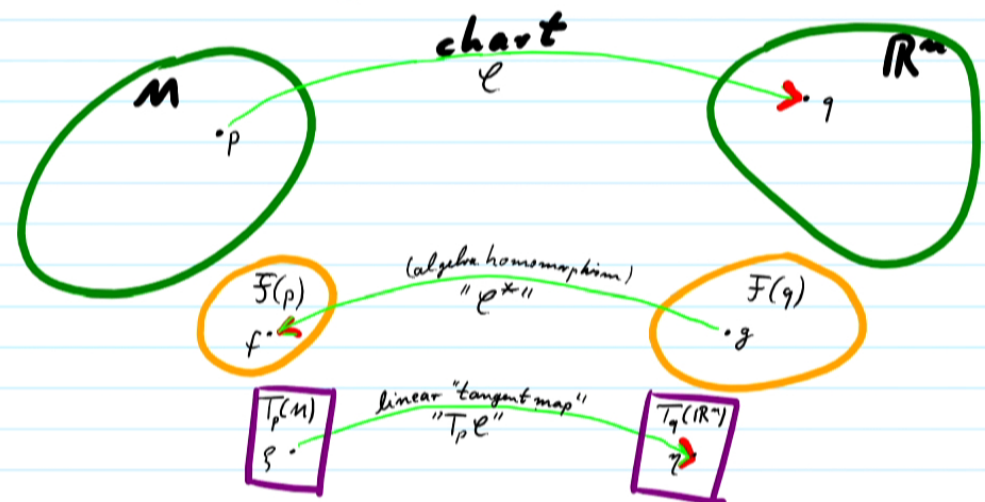 chart
φ
M
ℝⁿ
·p
·q
(algebra homomorphism)
"φ*"
F(p)
F(q)
f·
·g
linear "tangent map"
"Tₚφ"
Tₚ(M)
T_q(ℝⁿ)
ξ·
η